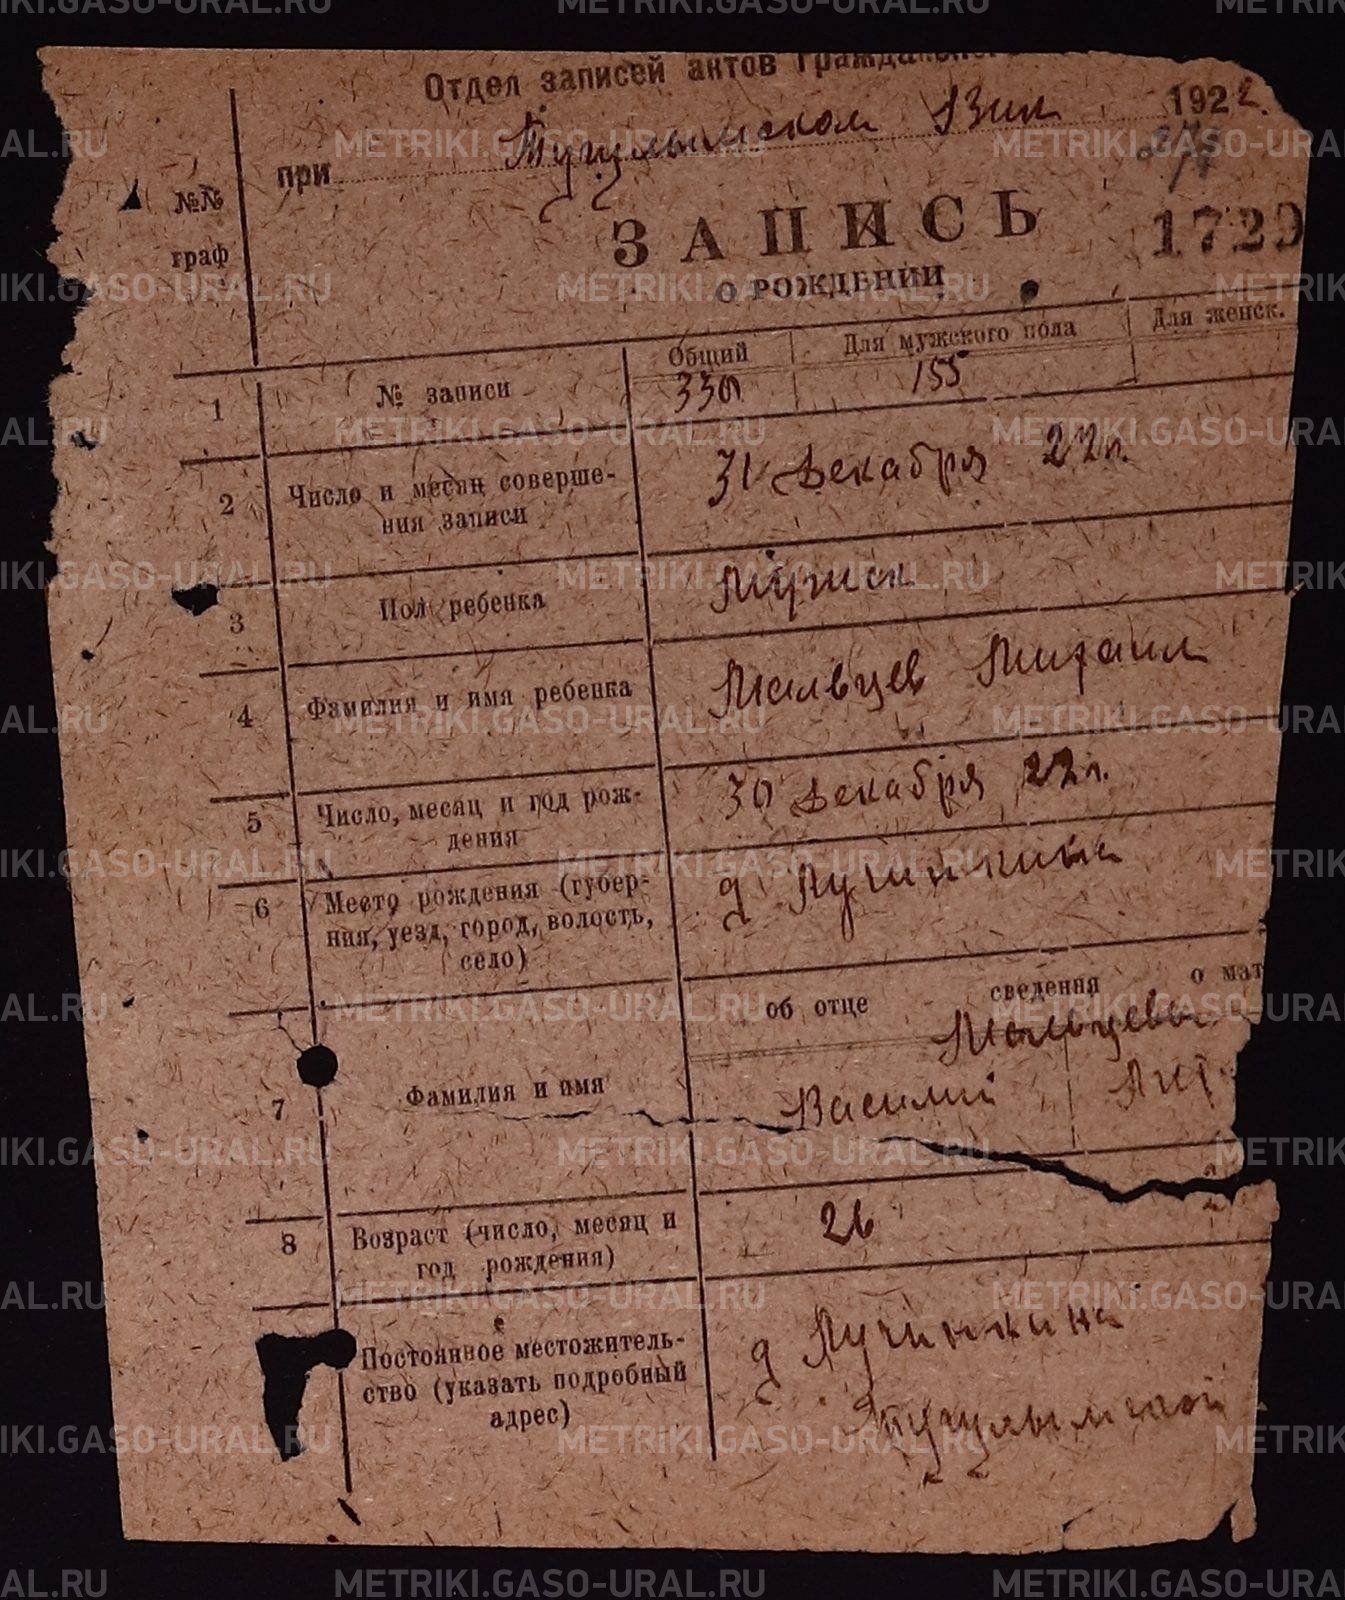 Отдел записей актов Гражданско
1922
при Тугулымском ВИК
№№
граф
ЗАПИСЬ
1729
О РОЖДЕНИИ
Общий Для мужского пола Для женск.
1 № записи 330 155
2 Число и месяц соверше-
ния записи
31 Декабря 22 г.
3 Пол ребенка Мужск
4 Фамилия и имя ребенка Мальцев Михаил
5 Число, месяц и год рож-
дения
30 Декабря 22 г.
6 Место рождения (губер-
ния, уезд, город, волость,
село)
д Лучинкина
об отце сведения о мат
Мальцевы
7 Фамилия и имя Василий
8 Возраст (число, месяц и
год рождения)
26
Постоянное местожитель-
ство (указать подробный
адрес)
д Лучинкина
Тугулымской
METRIKI.GASO-URAL.RU